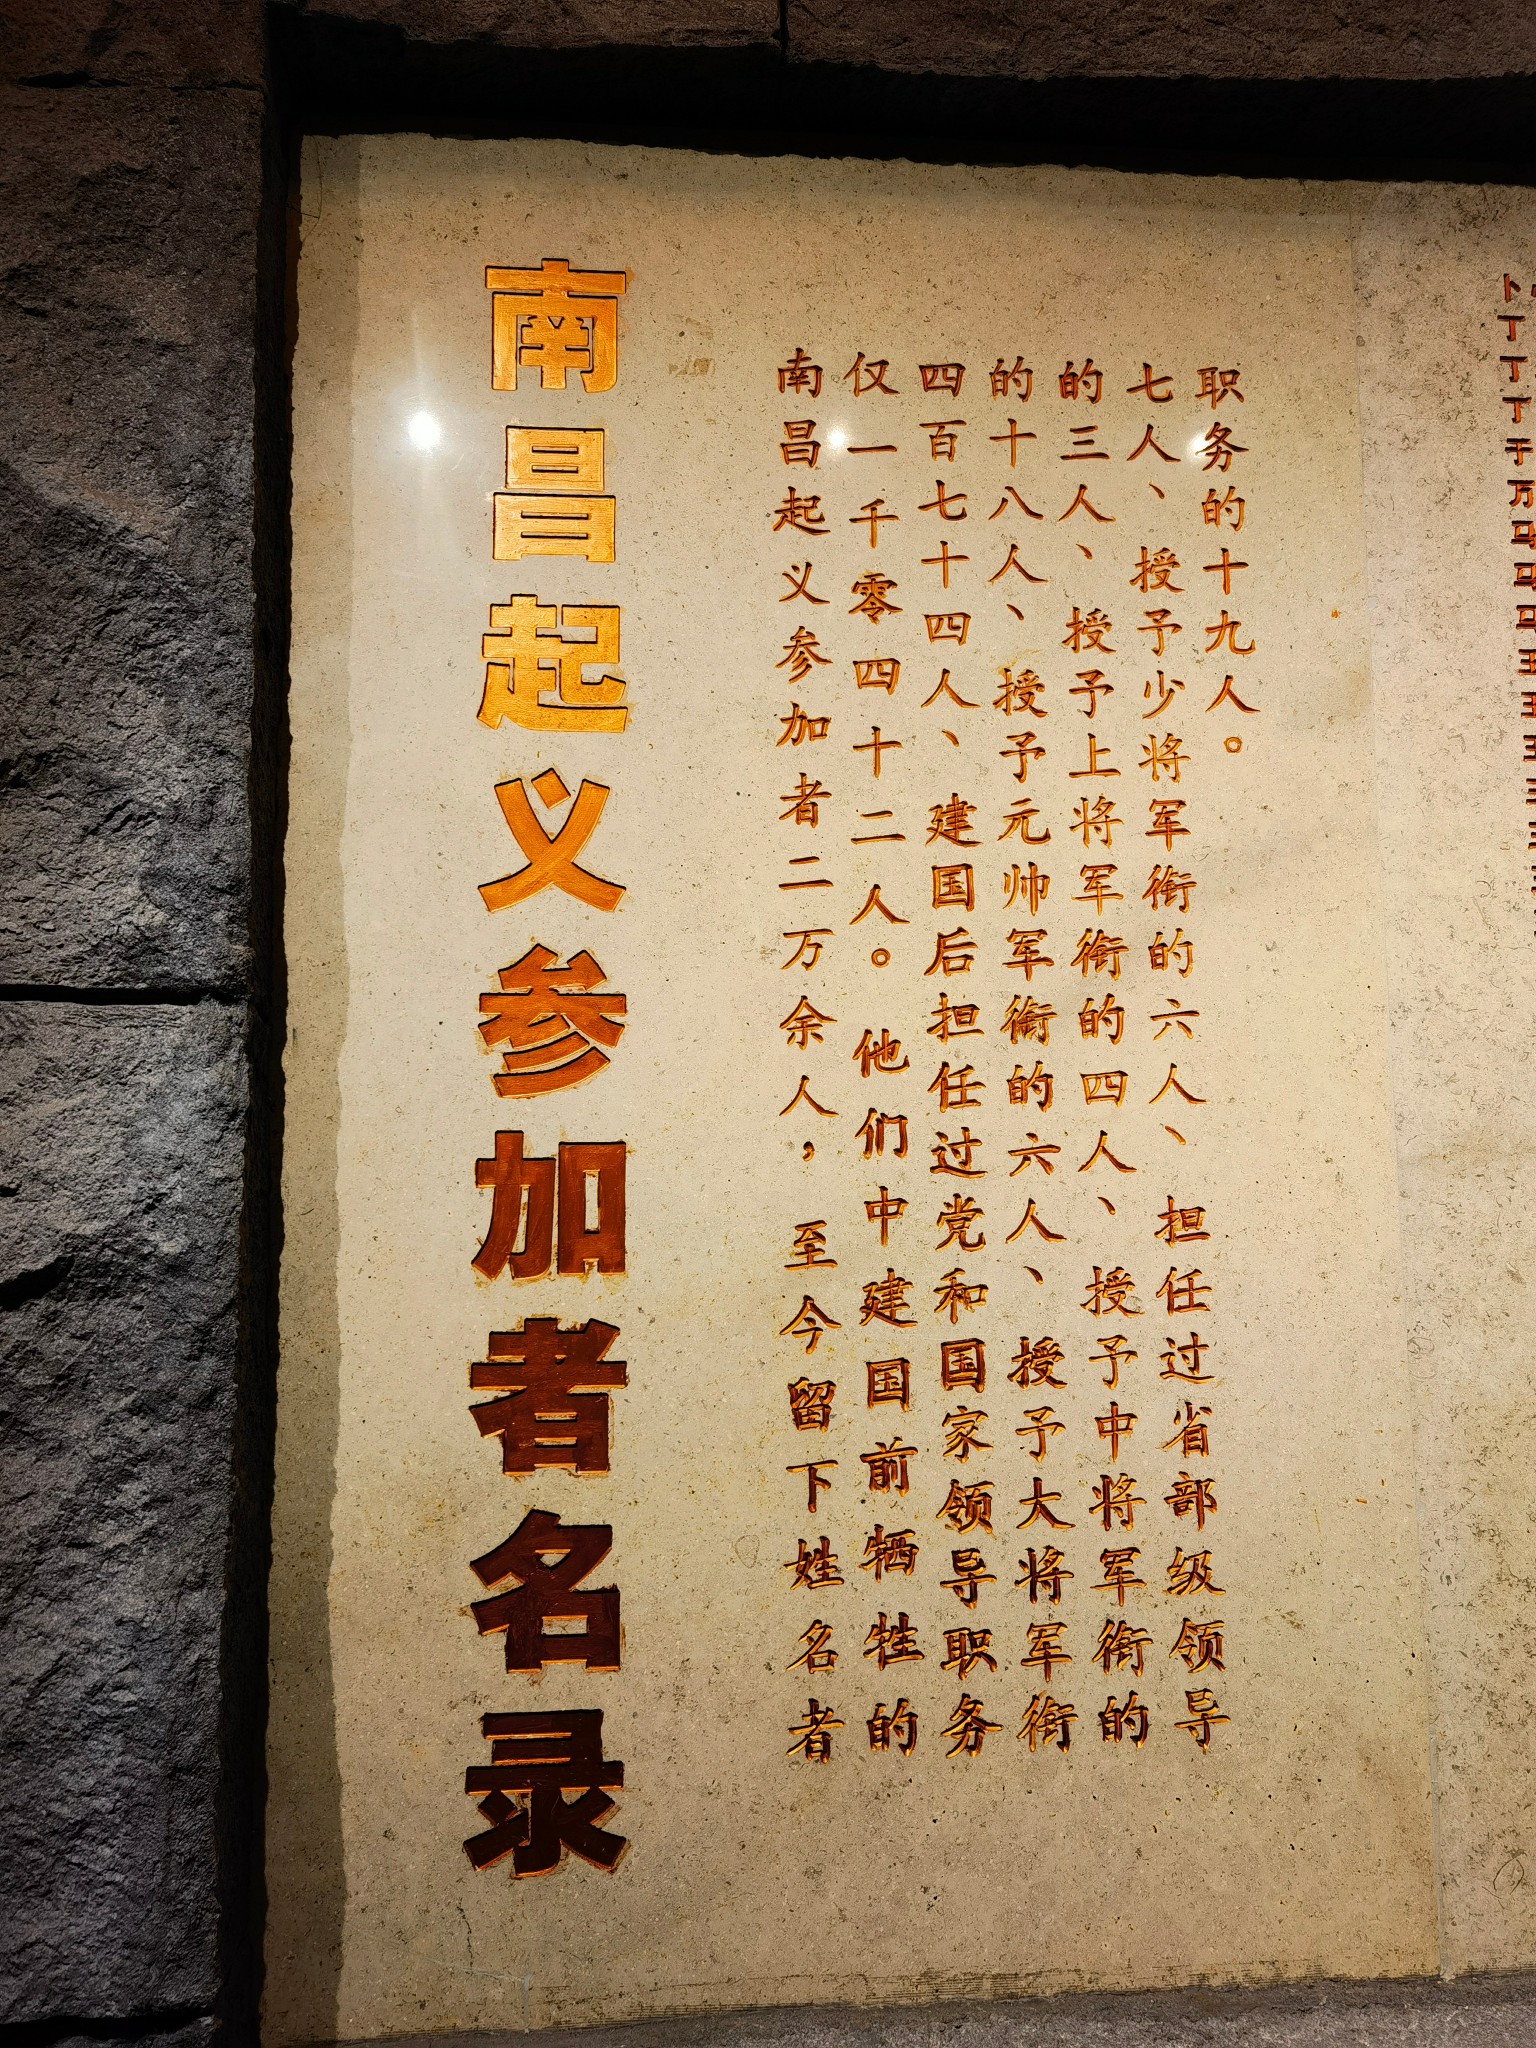 南昌起义参加者名录
南昌起义参加者二万余人，至今留下姓名者
仅一千零四十二人。他们中建国前牺牲的
四百七十四人、建国后担任过党和国家领导职务
的十八人、授予元帅军衔的六人、授予大将军衔
的三人、授予上将军衔的四人、授予中将军衔的
七人、授予少将军衔的六人、担任过省部级领导
职务的十九人。